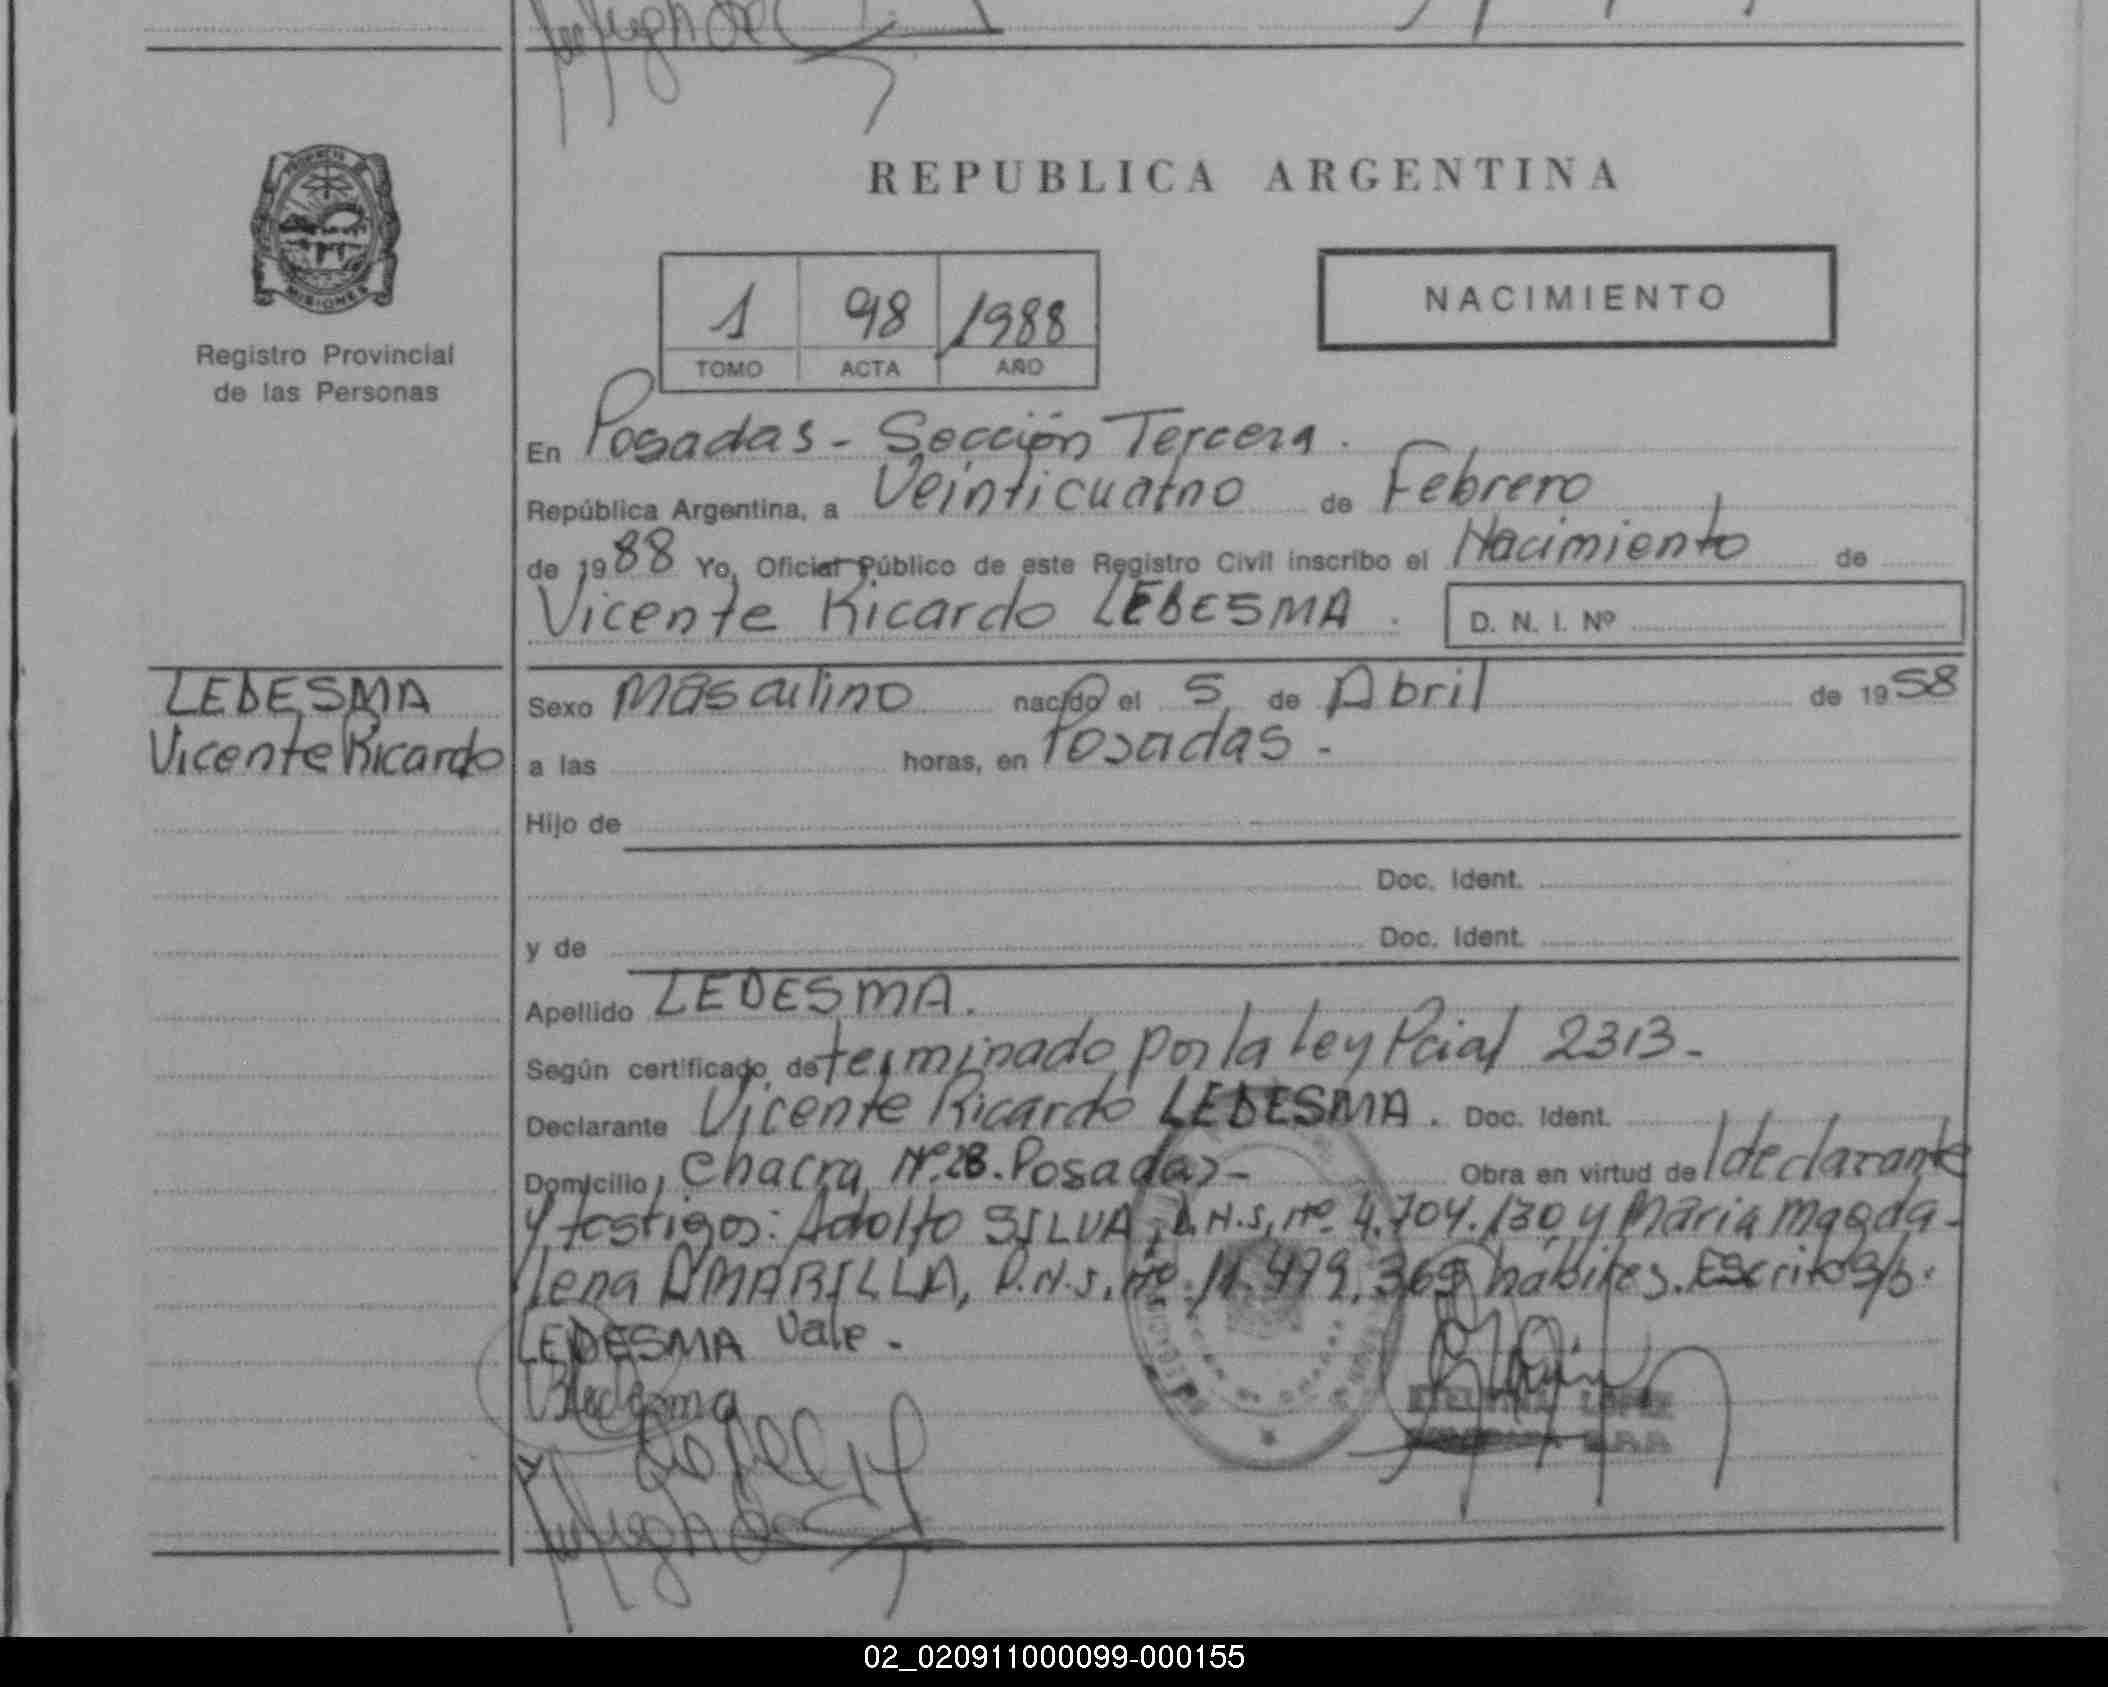 REPUBLICA ARGENTINA
PROVINCIA DE
MISIONES
Registro Provincial
de las Personas
1 98 1988
TOMO ACTA AÑO
NACIMIENTO
En Posadas - Sección Tercera.
República Argentina, a Veinticuatro de Febrero
de 1988 Yo, Oficial Público de este Registro Civil inscribo el Nacimiento de
Vicente Ricardo LEDESMA.
D. N. I. Nº
LEDESMA
Vicente Ricardo
Sexo Masculino nacido el 5 de Abril de 1958
a las horas, en Posadas.-
Hijo de
Doc. Ident.
y de Doc. Ident.
Apellido LEDESMA.
Según certificado determinado por la Ley Pcial 2313-
Declarante Vicente Ricardo LEDESMA. Doc. Ident.
Domicilio Chacra Nº 28. Posadas- Obra en virtud del declarante
y testigos: Adolfo SILVA, D.N.I. Nº 4.704.130 y Maria Magda-
lena AMARILLA, D.N.I. Nº 11.499.369 hábiles. Escrito s/b.
LEDESMA Vale.-
VRLedesma
LOPEZ
02_020911000099-000155